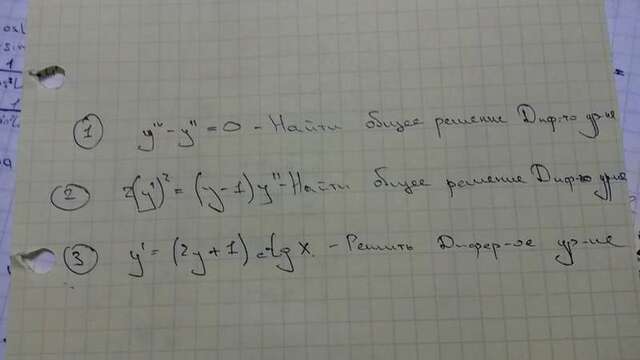 osL
sin
1
1
① y''' - y'' = 0 - Найти общее решение Диф-го ур-ия
② 2(y')² = (y-1) y'' - Найти общее решение Диф-го ур-ия
③ y' = (2y+1) ctg x. - Решить Дифер-ое ур-ие